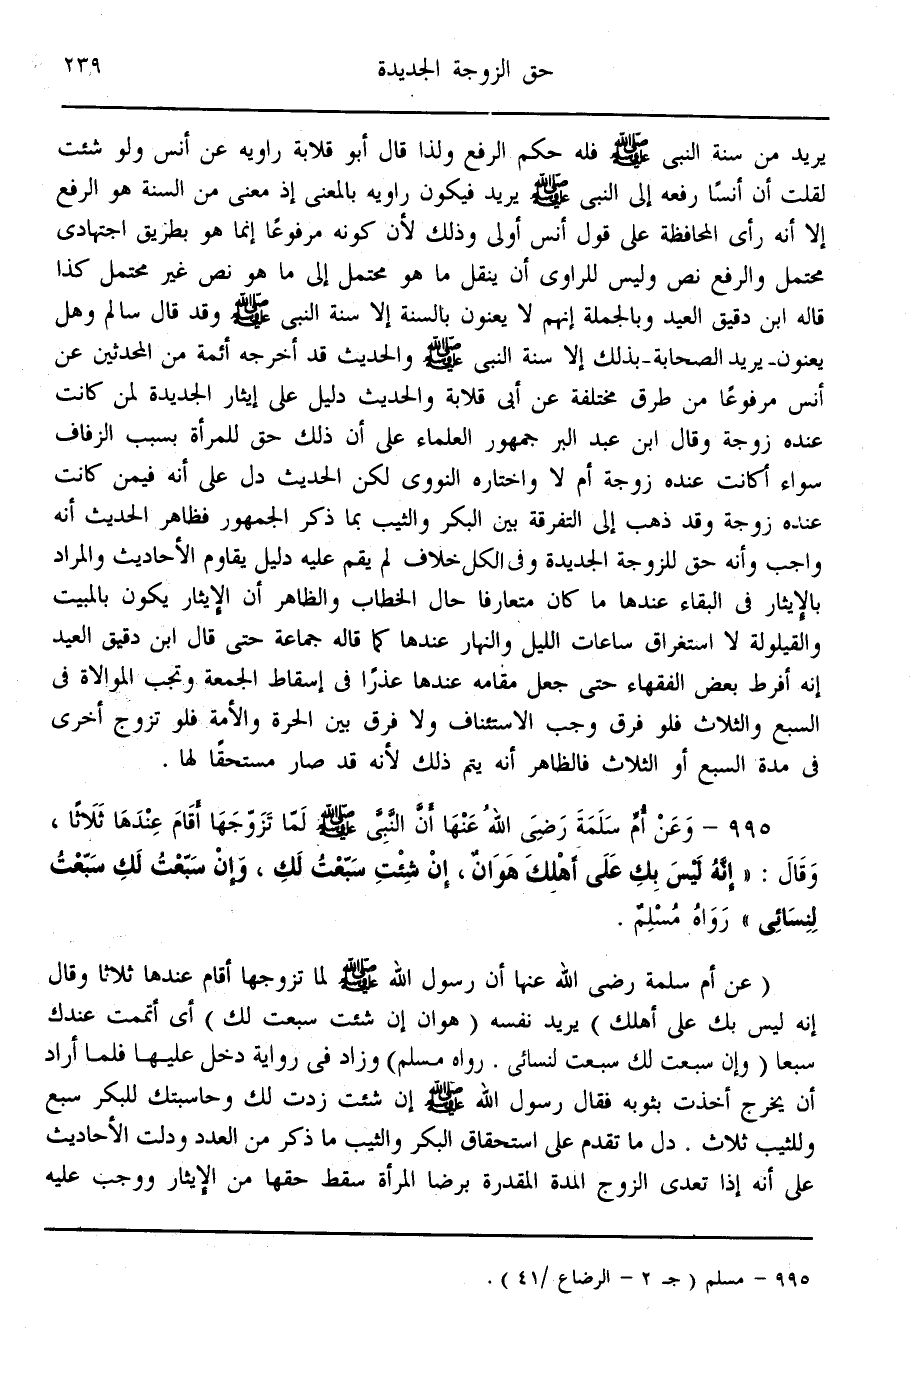 حق الزوجة الجديدة ٢٣٩
يريد من سنة النبى ﷺ فله حكم الرفع ولذا قال أبو قلابة راويه عن أنس ولو شئت
لقلت أن أنسًا رفعه إلى النبى ﷺ يريد فيكون راويه بالمعنى إذ معنى من السنة هو الرفع
إلا أنه رأى المحافظة على قول أنس أولى وذلك لأن كونه مرفوعًا إنما هو بطريق اجتهادى
محتمل والرفع نص وليس للراوى أن ينقل ما هو محتمل إلى ما هو نص غير محتمل كذا
قاله ابن دقيق العيد وبالجملة إنهم لا يعنون بالسنة إلا سنة النبى ﷺ وقد قال سالم وهل
يعنون-يريد الصحابة-بذلك إلا سنة النبى ﷺ والحديث قد أخرجه أئمة من المحدثين عن
أنس مرفوعًا من طرق مختلفة عن أبى قلابة والحديث دليل على إيثار الجديدة لمن كانت
عنده زوجة وقال ابن عبد البر جمهور العلماء على أن ذلك حق للمرأة بسبب الزفاف
سواء أكانت عنده زوجة أم لا واختاره النووى لكن الحديث دل على أنه فيمن كانت
عنده زوجة وقد ذهب إلى التفرقة بين البكر والثيب بما ذكر الجمهور فظاهر الحديث أنه
واجب وأنه حق للزوجة الجديدة وفى الكل خلاف لم يقم عليه دليل يقاوم الأحاديث والمراد
بالإيثار فى البقاء عندها ما كان متعارفا حال الخطاب والظاهر أن الإيثار يكون بالمبيت
والقيلولة لا استغراق ساعات الليل والنهار عندها كما قاله جماعة حتى قال ابن دقيق العيد
إنه أفرط بعض الفقهاء حتى جعل مقامه عندها عذرًا فى إسقاط الجمعة وتجب الموالاة فى
السبع والثلاث فلو فرق وجب الاستئناف ولا فرق بين الحرة والأمة فلو تزوج أخرى
فى مدة السبع أو الثلاث فالظاهر أنه يتم ذلك لأنه قد صار مستحقًا لها .
٩٩٥ – وَعَنْ أُمِّ سَلَمَةَ رَضِىَ اللهُ عَنْهَا أَنَّ النَّبِىَّ ﷺ لَمَّا تَزَوَّجَهَا أَقَامَ عِنْدَهَا ثَلَاثًا ،
وَقَالَ : « إِنَّهُ لَيْسَ بِكِ عَلَى أَهْلِكَ هَوَانٌ ، إِنْ شِئْتِ سَبَّعْتُ لَكِ ، وَإِنْ سَبَّعْتُ لَكِ سَبَّعْتُ
لِنِسَائِى » رَوَاهُ مُسْلِمٌ .
( عن أم سلمة رضى الله عنها أن رسول الله ﷺ لما تزوجها أقام عندها ثلاثا وقال
إنه ليس بك على أهلك ) يريد نفسه ( هوان إن شئت سبعت لك ) أى أتممت عندك
سبعا ( وإن سبعت لك سبعت لنسائى . رواه مسلم) وزاد فى رواية دخل عليها فلما أراد
أن يخرج أخذت بثوبه فقال رسول الله ﷺ إن شئت زدت لك وحاسبتك للبكر سبع
وللثيب ثلاث . دل ما تقدم على استحقاق البكر والثيب ما ذكر من العدد ودلت الأحاديث
على أنه إذا تعدى الزوج المدة المقدرة برضا المرأة سقط حقها من الإيثار ووجب عليه
٩٩٥ – مسلم ( جـ ٢ – الرضاع /٤١ ) .